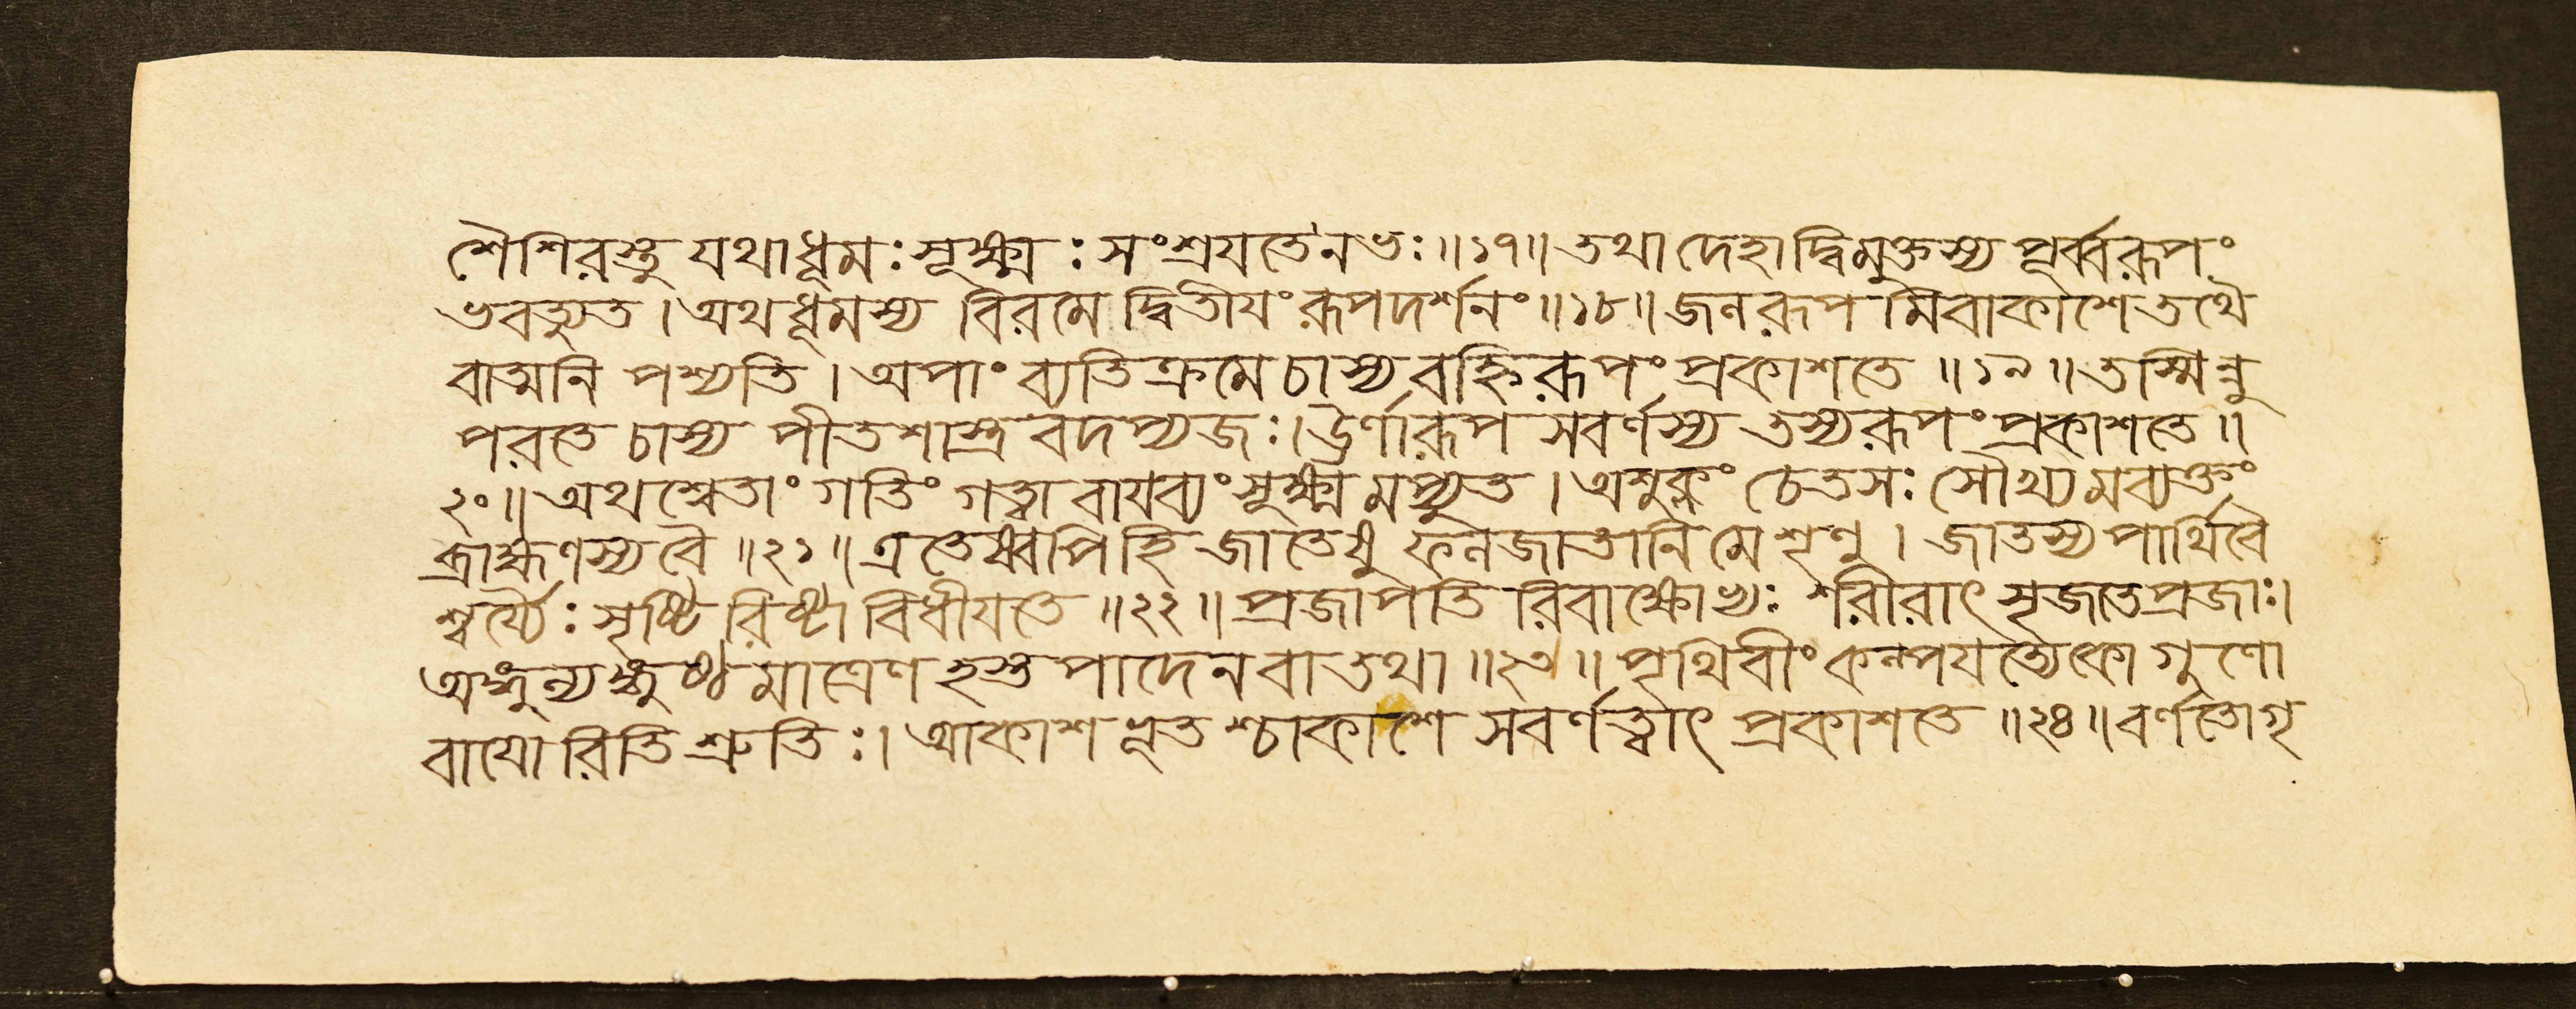 শৈশিরস্তু যথাধূমঃ সূক্ষ্মঃ সংশ্রযতে নভঃ॥১৭॥ তথা দেহাদ্বিমুক্তস্য পূর্ব্বরূপং
ভবত্যুত। অথধূমস্য বিরমে দ্বিতীযং রূপদর্শনং॥১৮॥ জনরূপ মিবাকাশে তথৈ
বাত্মনি পশ্যতি। অপাং ব্যতিক্রমে চাস্য বহ্নিরূপং প্রকাশতে॥১৯॥ তস্মিন্নু
পরতে চাস্য পীতশাস্ত্র বদপ্যজঃ। ঊর্ণারূপ সবর্ণস্য তস্যরূপং প্রকাশতে॥
২০॥ অথ শ্বেতাং গতিং গত্বা বাযব্যং সূক্ষ্মমপ্যুত। অশুক্লং চেতসঃ সৌখ্যমব্যক্তং
ব্রাহ্মণস্যবৈ॥২১॥ এতেষ্বপিহি জাতেষু ফনজাতানি মে শৃণু। জাতস্য পার্থিবৈ
শ্বর্য্যৈঃ সৃষ্টি রিষ্টা বিধীযতে॥২২॥ প্রজাপতি রিবাক্ষোভ্যঃ শরীরাৎ সৃজতে প্রজাঃ।
অঙ্গুল্যঙ্গুষ্ঠমাত্রেণ হস্তপাদেন বা তথা॥২৩॥ পৃথিবীং কম্পযত্যেকো গুণো
বাযো রিতি শ্রুতিঃ। আকাশ ভূতশ্চাকাশে সবর্ণত্বাৎ প্রকাশতে॥২৪॥ বর্ণতো গৃ